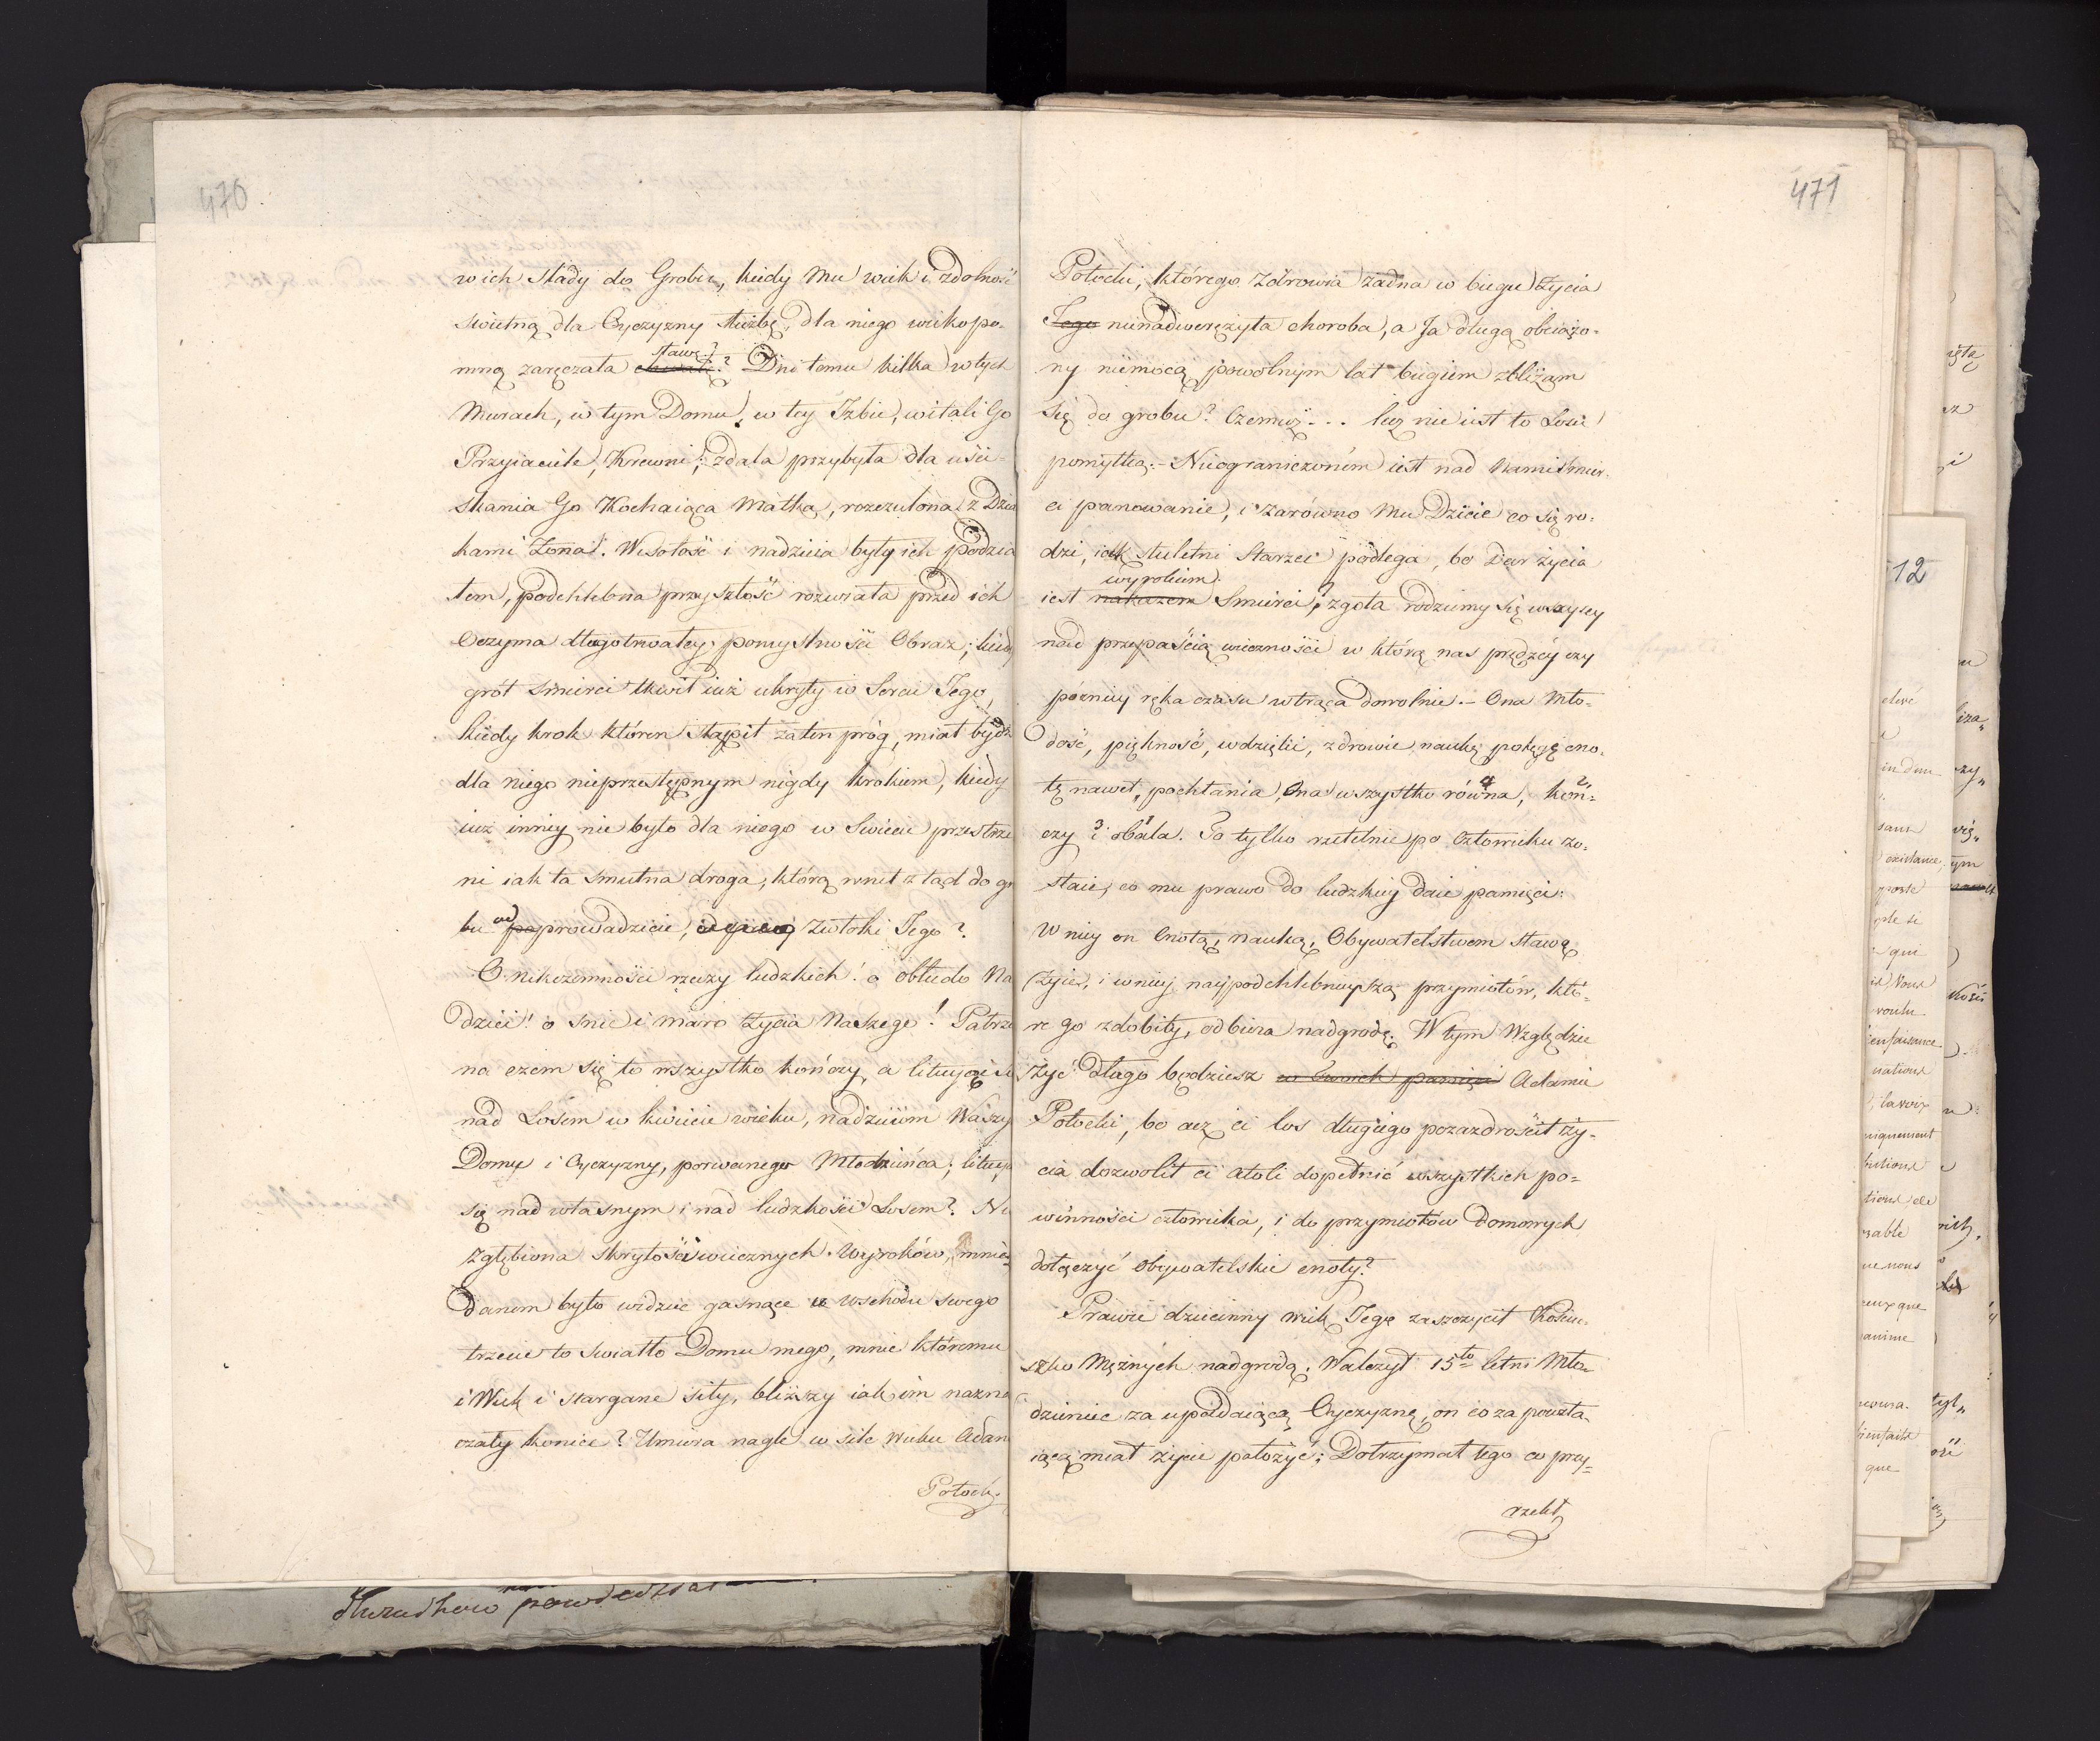 470
w ich stady do Grobu, kiedy Mu wiek i zdolność
swietną dla Oyczyzny służbę, dla niego wiekopo-
mną zaręczała chwałę sławę? Dni temu kilka w tych
Murach, w tym Domu, w tey Izbie, witali Go
Przyiaciele, Krewni; zdala przybyła dla uści-
skania Go Kochaiąca Matka, rozczulona z Dziat
kami Żona. Wesołość i nadzieia były ich podzia
łem, podchlebna przyszłość rozwiała przed ich
Oczyma długotrwałey pomyslności Obraz; kiedy
grót śmierci tkwił iuż ukryty w Sercu Jego,
kiedy krok któren stąpił za ten próg, miał bydź
dla niego nieprzestępnym nigdy krokiem, kiedy
iuż inney nie było dla niego w Swiecie przestrze
ni iak ta smutna droga, którą wnet z tąd do gro
bu od poprowadzicie, zwłoki Jego?
O nikczemności rzeczy ludzkich! o obłudo Na
dziei! o śnie i maro Życia Naszego! Patrzc
na czem się to wszystko kończy, a lituyąc się
nad Losem w kwiecie wieku, nadzieiom Waszy
Domu i Oyczyzny, porwanego Młodzieńca; lituyc
się nad własnym i nad ludzkości Losem? Nie
zgłębiona skrytości wiecznych Wyroków, mnie
danem było widzieć gasnące u wschodu swego
trzecie to Swiatło Domu mego, mnie któremu
i Wiek i stargane siły, bliższy iak im nazna
czały koniec? Umiera nagle w sile wieku Adam
Potocki.
471
Potocki, którego Zdrowia żadna w biegu Życia
Jego nienadwerężyła choroba, a Ja długą obciążo-
ny niemocą powolnym lat biegiem zbliżam
Się do grobu? Czemuż... lecz nie iest to Losu
pomyłką. Nieograniczonem iest nad Nami śmier-
ci panowanie, i zarówno Mu Dziecie co się ro-
dzi, iak stuletni Starzec podlega, bo Dar życia
iest nakazem wyrokiem Śmierci, zgoła rodziemy się wszyscy
nad przepaścią wieczności w którą nas prędzéy czy
późniey ręka czasu wtrąca dowolnie. Ona Mło-
dość, piękność, wdzięki, zdrowie naukę potęgę cno-
tę nawet, pochłania, Ona wszystko równa, 4 koń- 2
czy 3 i obala. 1 To tylko rzetelnie po Człowieku zo-
staie, co mu prawo do ludzkiey daie pamięci:
W niey on Cnotą, nauką, Obywatelstwem sławą
żyie, i w niey naypodchlebnieyszą przymiotów, któ-
re go zdobiły, odbiera nadgrodę. W tym Względzie
żyć długo będziesz w Twoich pamięci Adamie
Potocki, bo acz ci los długiego pozazdrościł ży-
cia dozwolił ci atoli dopełnić wszystkich po-
winności człowieka, i do przymiotów Domowych
dołączyć obywatelskie cnoty?
Prawie dziecinny wiek Jego zaszczycił Kościu-
szko Mężnych nadgrodą. Walczył 15to letni Mło-
dzieniec za upadaiącą Oyczyznę, on co za powsta-
iącą miał życie położyć; Dotrzymał tego co przy-
rzekł
12